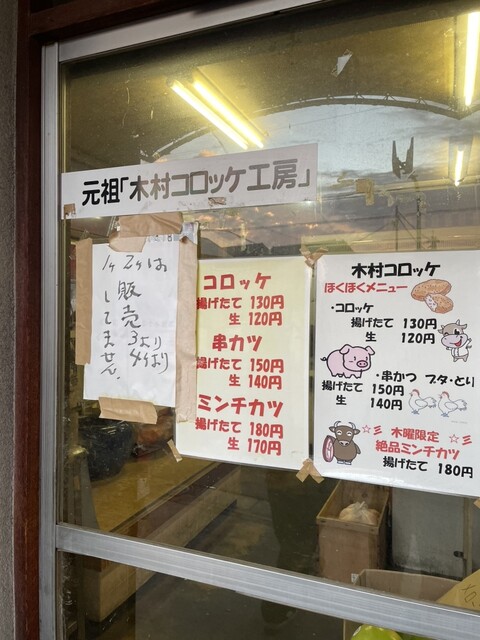 元祖「木村コロッケ工房」
1ケ 2ケは
販売
してません。
3より
4ケより
コロッケ
揚げたて 130円
生 120円
串カツ
揚げたて 150円
生 140円
ミンチカツ
揚げたて 180円
生 170円
木村コロッケ
ほくほくメニュー
・コロッケ
揚げたて 130円
生 120円
・串かつ ブタ・とり
揚げたて 150円
生 140円
☆彡 木曜限定 ☆彡
絶品ミンチカツ
揚げたて 180円